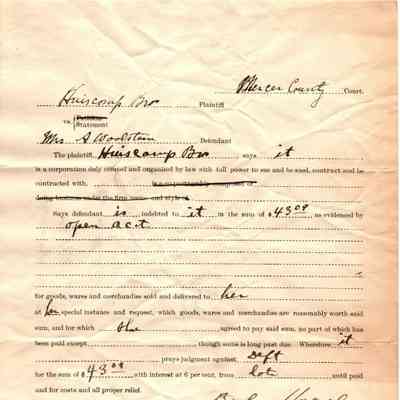 Mercer County Court.
Huiscamp Bro Plaintiff
vs. Petition Statement
Mrs S Woolstein Defendant
The plaintiff, Huiscamp Bro says it
is a corporation duly created and organized by law with full power to sue and be sued, contract and be
contracted with. is a copartnership composed of
doing business under the firm name and style of
Says defendant is indebted to it in the sum of $43.08 as evidenced by
open act
for goods, wares and merchandise sold and delivered to her
at her special instance and request, which goods, wares and merchandise are reasonably worth said
sum, and for which she agreed to pay said sum, no part of which has
been paid except though same is long past due. Wherefore it
prays judgment against Deft
for the sum of $43.08 with interest at 6 per cent, from until paid
and for costs and all proper relief.